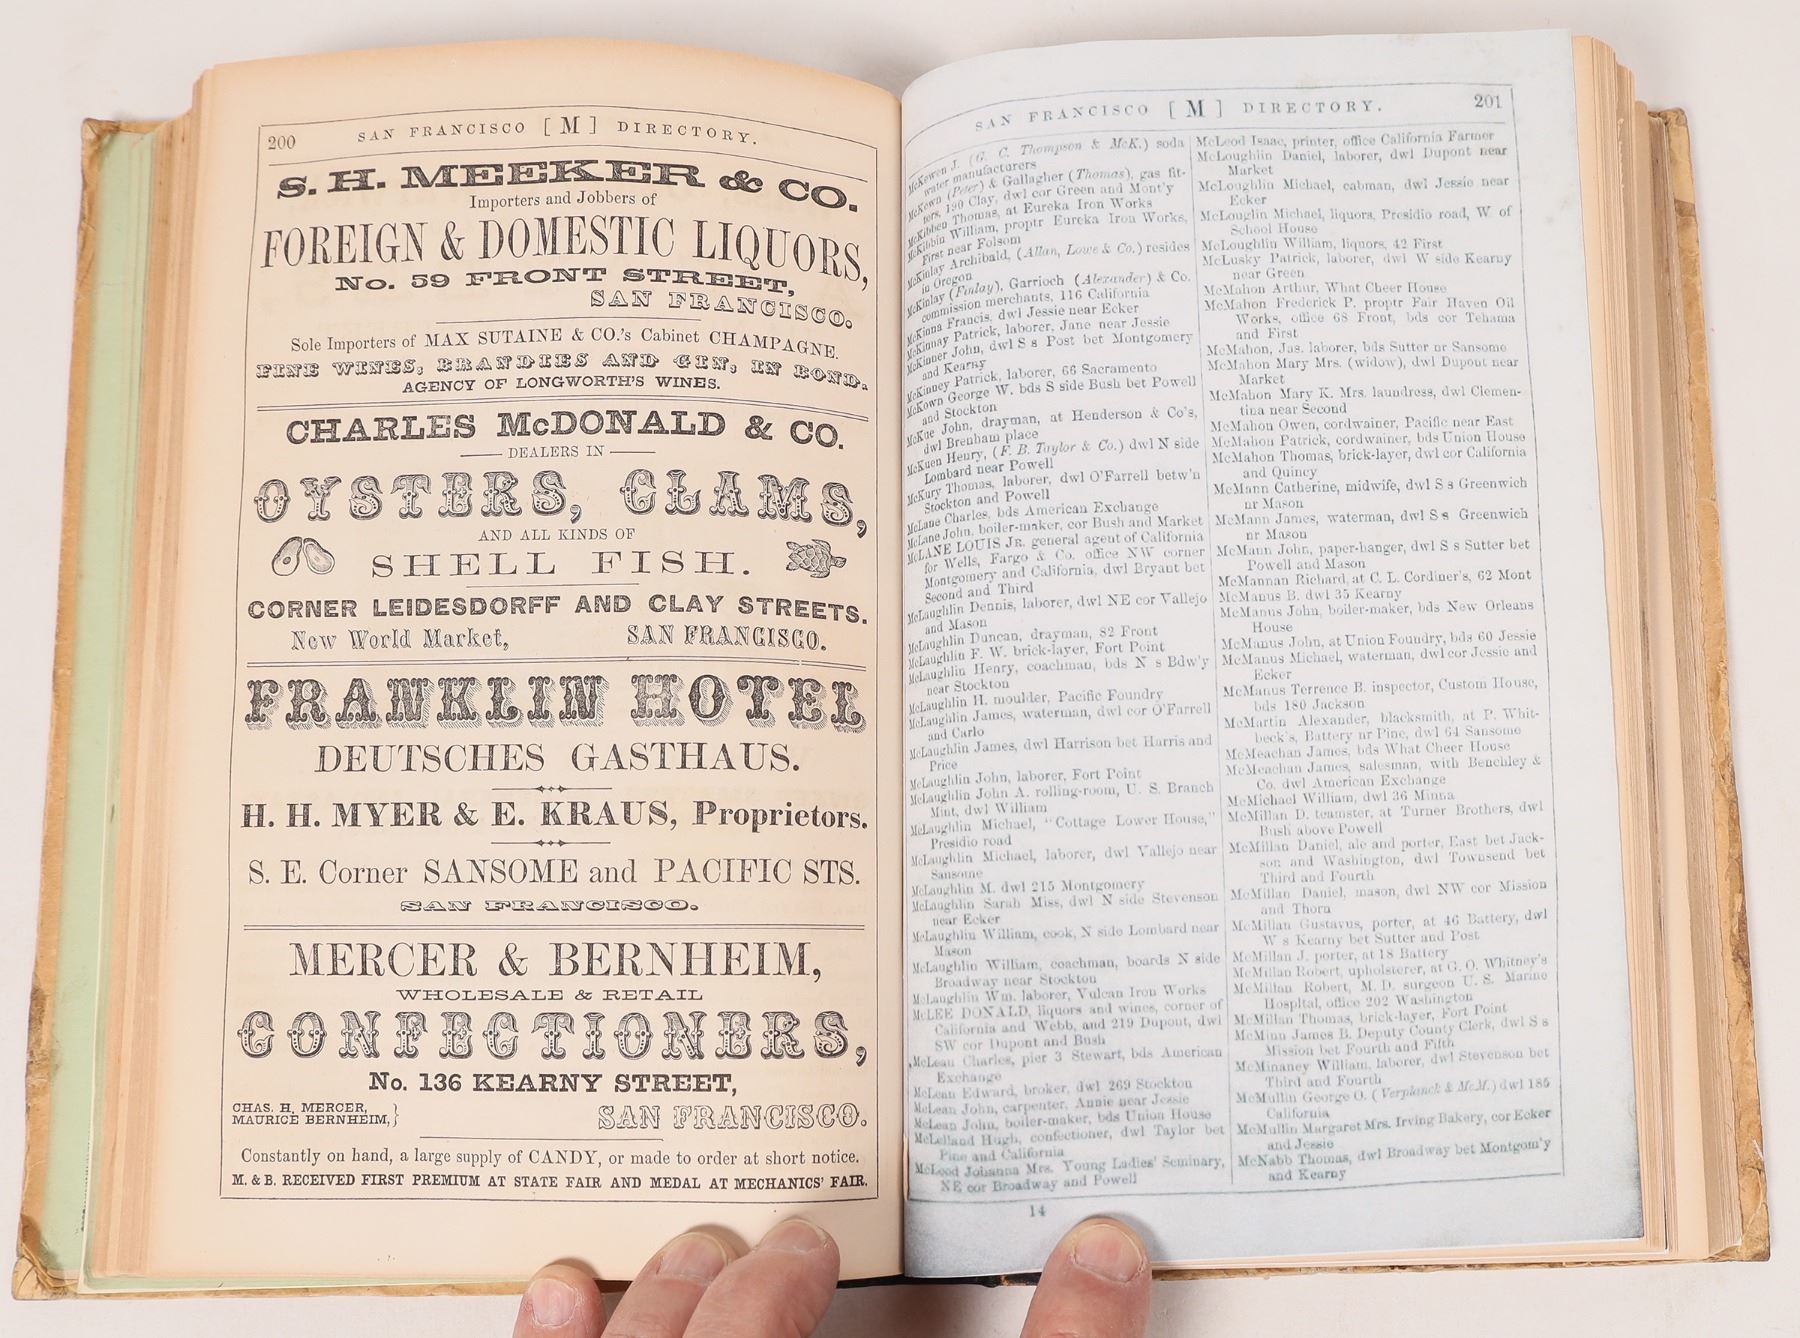 200
SAN FRANCISCO [ M ] DIRECTORY.
S. H. MEEKER & CO.
Importers and Jobbers of
FOREIGN & DOMESTIC LIQUORS,
No. 59 FRONT STREET,
SAN FRANCISCO.
Sole Importers of MAX SUTAINE & CO.'s Cabinet CHAMPAGNE.
FINE WINES, BRANDIES AND GIN, IN BOND.
AGENCY OF LONGWORTH'S WINES.
CHARLES McDONALD & CO.
DEALERS IN
OYSTERS, CLAMS,
AND ALL KINDS OF
SHELL FISH.
CORNER LEIDESDORFF AND CLAY STREETS.
New World Market, SAN FRANCISCO.
FRANKLIN HOTEL
DEUTSCHES GASTHAUS.
H. H. MYER & E. KRAUS, Proprietors.
S. E. Corner SANSOME and PACIFIC STS.
SAN FRANCISCO.
MERCER & BERNHEIM,
WHOLESALE & RETAIL
CONFECTIONERS,
No. 136 KEARNY STREET,
CHAS. H. MERCER,
MAURICE BERNHEIM,}
SAN FRANCISCO.
Constantly on hand, a large supply of CANDY, or made to order at short notice.
M. & B. RECEIVED FIRST PREMIUM AT STATE FAIR AND MEDAL AT MECHANICS' FAIR.
SAN FRANCISCO [ M ] DIRECTORY.
201
McKewen J. (G. C. Thompson & McK.) soda
water manufacturers
McKown (Peter) & Gallagher (Thomas), gas fit-
ters, 190 Clay, dwl cor Green and Mont'y
McKibben Thomas, at Eureka Iron Works
McKibbin William, proptr Eureka Iron Works,
First near Folsom
McKinlay Archibald, (Allan, Lowe & Co.) resides
in Oregon
McKinlay (Finlay), Garrioch (Alexander) & Co.
commission merchants, 116 California
McKinna Francis, dwl Jessie near Ecker
McKinnay Patrick, laborer, Jane near Jessie
McKinner John, dwl S s Post bet Montgomery
and Kearny
McKinney Patrick, laborer, 66 Sacramento
McKown George W. bds S side Bush bet Powell
and Stockton
McKue John, drayman, at Henderson & Co's,
dwl Brenham place
McKuen Henry, (F. B. Taylor & Co.) dwl N side
Lombard near Powell
McKury Thomas, laborer, dwl O'Farrell betw'n
Stockton and Powell
McLane Charles, bds American Exchange
McLane John, boiler-maker, cor Bush and Market
McLANE LOUIS JR. general agent of California
for Wells, Fargo & Co. office NW corner
Montgomery and California, dwl Bryant bet
Second and Third
McLaughlin Dennis, laborer, dwl NE cor Vallejo
and Mason
McLaughlin Duncan, drayman, 82 Front
McLaughlin F. W. brick-layer, Fort Point
McLaughlin Henry, coachman, bds N s Bdw'y
near Stockton
McLaughlin H. moulder, Pacific Foundry
McLaughlin James, waterman, dwl cor O'Farrell
and Carlo
McLaughlin James, dwl Harrison bet Harris and
Price
McLaughlin John, laborer, Fort Point
McLaughlin John A. rolling-room, U. S. Branch
Mint, dwl William
McLaughlin Michael, "Cottage Lower House,"
Presidio road
McLaughlin Michael, laborer, dwl Vallejo near
Sansome
McLaughlin M. dwl 215 Montgomery
McLaughlin Sarah Miss, dwl N side Stevenson
near Ecker
McLaughlin William, cook, N side Lombard near
Mason
McLaughlin William, coachman, boards N side
Broadway near Stockton
McLaughlin Wm. laborer, Vulcan Iron Works
McLEE DONALD, liquors and wines, corner of
California and Webb, and 219 Dupont, dwl
SW cor Dupont and Bush
McLean Charles, pier 3 Stewart, bds American
Exchange
McLean Edward, broker, dwl 269 Stockton
McLean John, carpenter, Annie near Jessie
McLean John, boiler-maker, bds Union House
McLelland Hugh, confectioner, dwl Taylor bet
Pine and California
McLeod Johanna Mrs. Young Ladies' Seminary,
NE cor Broadway and Powell
McLeod Isaac, printer, office California Farmer
McLoughlin Daniel, laborer, dwl Dupont near
Market
McLoughlin Michael, cabman, dwl Jessie near
Ecker
McLouglin Michael, liquors, Presidio road, W of
School House
McLoughlin William, liquors, 42 First
McLusky Patrick, laborer, dwl W side Kearny
near Green
McMahon Arthur, What Cheer House
McMahon Frederick P. proptr Fair Haven Oil
Works, office 68 Front, bds cor Tehama
and First
McMahon, Jas. laborer, bds Sutter nr Sansome
McMahon Mary Mrs. (widow), dwl Dupont near
Market
McMahon Mary K. Mrs. laundress, dwl Clemen-
tina near Second
McMahon Owen, cordwainer, Pacific near East
McMahon Patrick, cordwainer, bds Union House
McMahon Thomas, brick-layer, dwl cor California
and Quincy
McMann Catherine, midwife, dwl S s Greenwich
nr Mason
McMann James, waterman, dwl S s Greenwich
nr Mason
McMann John, paper-hanger, dwl S s Sutter bet
Powell and Mason
McMannan Richard, at C. L. Cordiner's, 62 Mont
McManus B. dwl 35 Kearny
McManus John, boiler-maker, bds New Orleans
House
McManus John, at Union Foundry, bds 60 Jessie
McManus Michael, waterman, dwl cor Jessie and
Ecker
McManus Terrence B. inspector, Custom House,
bds 180 Jackson
McMartin Alexander, blacksmith, at P. Whit-
beck's, Battery nr Pine, dwl 64 Sansome
McMeachan James, bds What Cheer House
McMeachan James, salesman, with Benchley &
Co. dwl American Exchange
McMichael William, dwl 36 Minna
McMillan D. teamster, at Turner Brothers, dwl
Bush above Powell
McMillan Daniel, ale and porter, East bet Jack-
son and Washington, dwl Townsend bet
Third and Fourth
McMillan Daniel, mason, dwl NW cor Mission
and Thorn
McMillan Gustavus, porter, at 46 Battery, dwl
W s Kearny bet Sutter and Post
McMillan J. porter, at 18 Battery
McMillan Robert, upholsterer, at G. O. Whitney's
McMillan Robert, M. D. surgeon U. S. Marine
Hospital, office 202 Washington
McMillan Thomas, brick-layer, Fort Point
McMinn James B. Deputy County Clerk, dwl S s
Mission bet Fourth and Fifth
McMinaney William, laborer, dwl Stevenson bet
Third and Fourth
McMullin George O. (Verplanck & McM.) dwl 185
California
McMullin Margaret Mrs. Irving Bakery, cor Ecker
and Jessie
McNabb Thomas, dwl Broadway bet Montgom'y
and Kearny
14